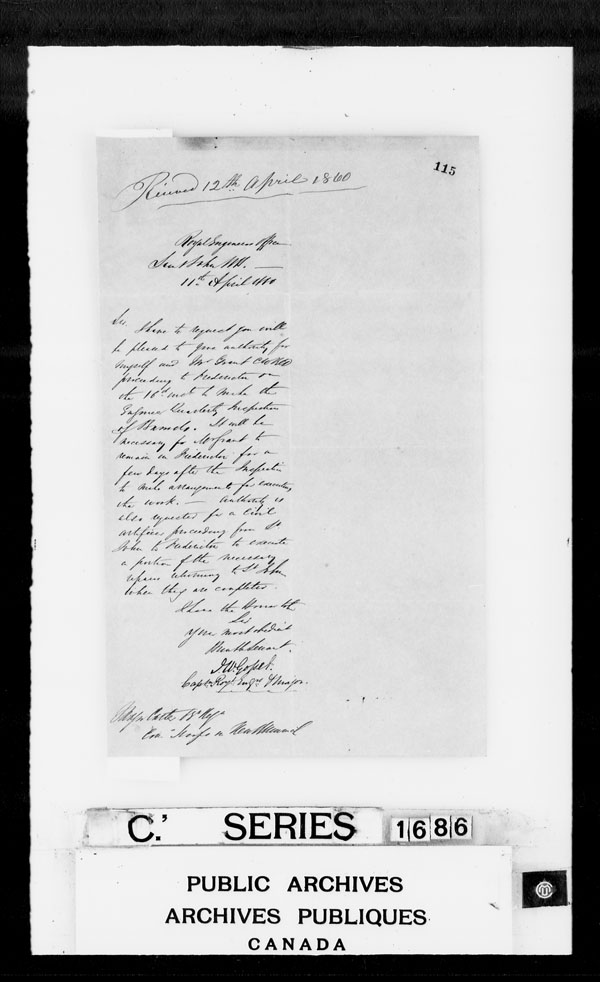 115
Received 12th April 1860
Royal Engineers Office
Saint John NB. —
11th April 1860
Sir,
I have to request you will
be pleased to give authority for
myself and Mr Grant
proceeding to Fredericton on
the 16th inst to make the
Engineer Quarterly Inspection
of Barracks. It will be
necessary for Mr Grant to
remain in Fredericton for a
few days after the Inspection
to make arrangements for executing
the work. — Authority is
also requested for a Civil
artificer proceeding from St
John to Fredericton to execute
a portion of the necessary
repairs returning to St John
when they are completed.
I have the Honor to be
Sir
your most obedient
Humble Servant.
Capt Royl Engrs & Major.
Major Carter
Com Troops in New Brunswick
C.' SERIES 1686
PUBLIC ARCHIVES
ARCHIVES PUBLIQUES
CANADA